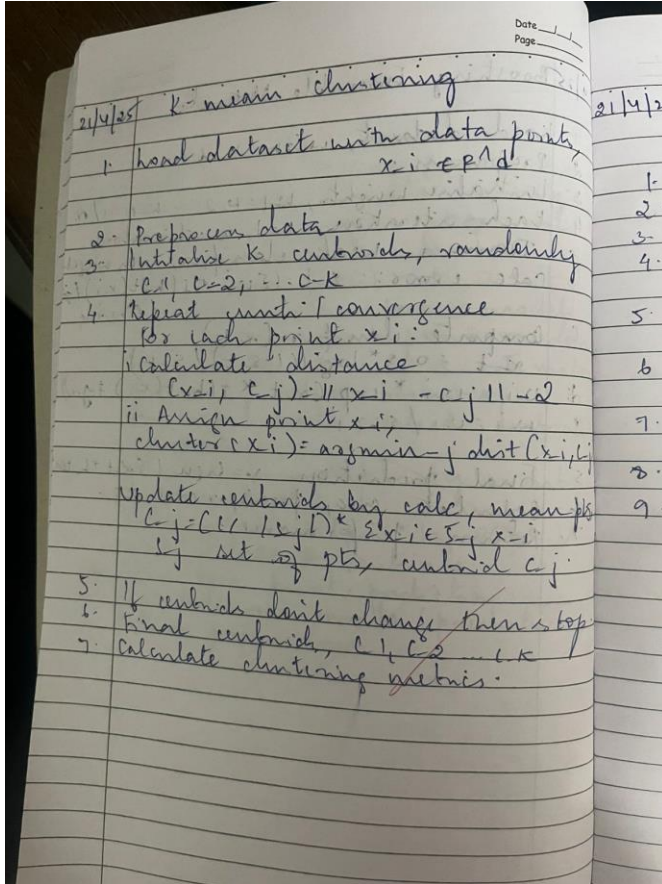 Date
Page
21/4/25 K-mean clustering
1. Load dataset with data points,
x-i ∈ R^d
2. Preprocess data.
3. Initalise K centroids, randomly
C1, C-2, ... C-K
4. Repeat until convergence
for each point xi:
i Calculate distance
(x-i, C-j) = || x-i - C-j || -2
ii Assign point xi,
cluster(xi) = argmin-j dist (x-i, C-j
Update centroids by calc, mean pts
C-j = (1/ |S-j|) * Σx-i ∈ S-j x-i
S-j set of pts, centroid C-j.
5. If centroids don't change then stop.
6. Final centroids, C1, C2 ... C-K
7. Calculate clustering metrics.
21/4/2
1-
2
3-
4.
5.
6
7.
8.
9